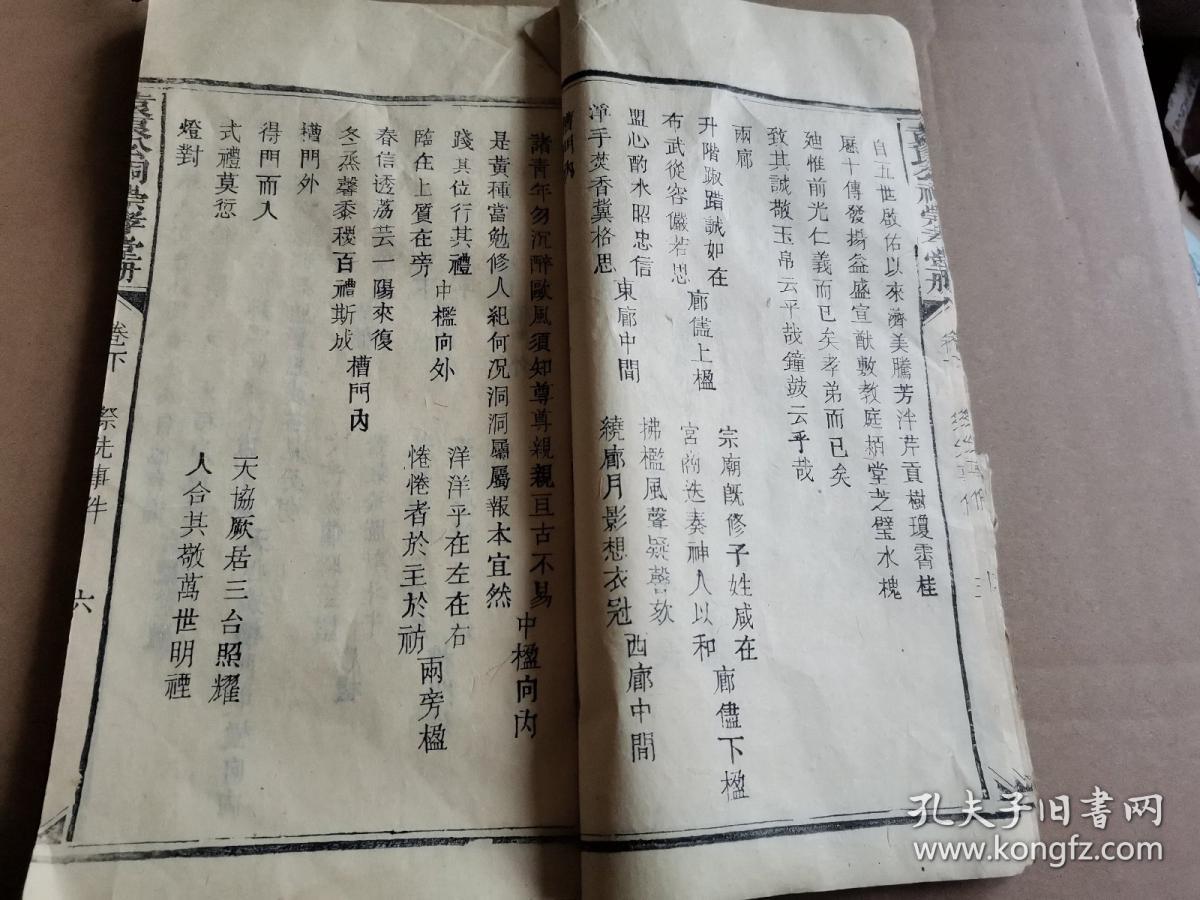 自五世啟佑以來濟美騰芳泮芹貢樹瓊香桂
歷十傳發揚益盛宣猷敷教庭栢堂芝璧水槐
廸惟前光仁義而已矣孝弟而已矣
致其誠敬玉帛云乎哉鐘鼓云乎哉
兩廊
升階踧踖誠如在 廊儘上楹 宗廟旣修子姓咸在 廊儘下楹
布武從容儼若思 宮商迭奏神人以和
盟心酌水昭忠信 東廊中間 拂檻風聲疑謦欬 西廊中間
淨手焚香冀格思 繞廊月影想衣冠
諸青年勿沉醉歐風須知尊尊親親亘古不易 中楹向內
是黃種當勉修人紀何況洞洞屬屬報本宜然
踐其位行其禮 中檻向外 洋洋乎在左在右 兩旁楹
臨在上質在旁 惓惓者於主於祊
春信透荔芸一陽來復 槽門內
冬烝馨黍稷百禮斯成
槽門外
得門而人 天協厥居三台照耀
式禮莫愆 人合其敬萬世明禋
燈對
公祠崇孝堂册
卷下
祭先事件
六
孔夫子旧书网
www.kongfz.com